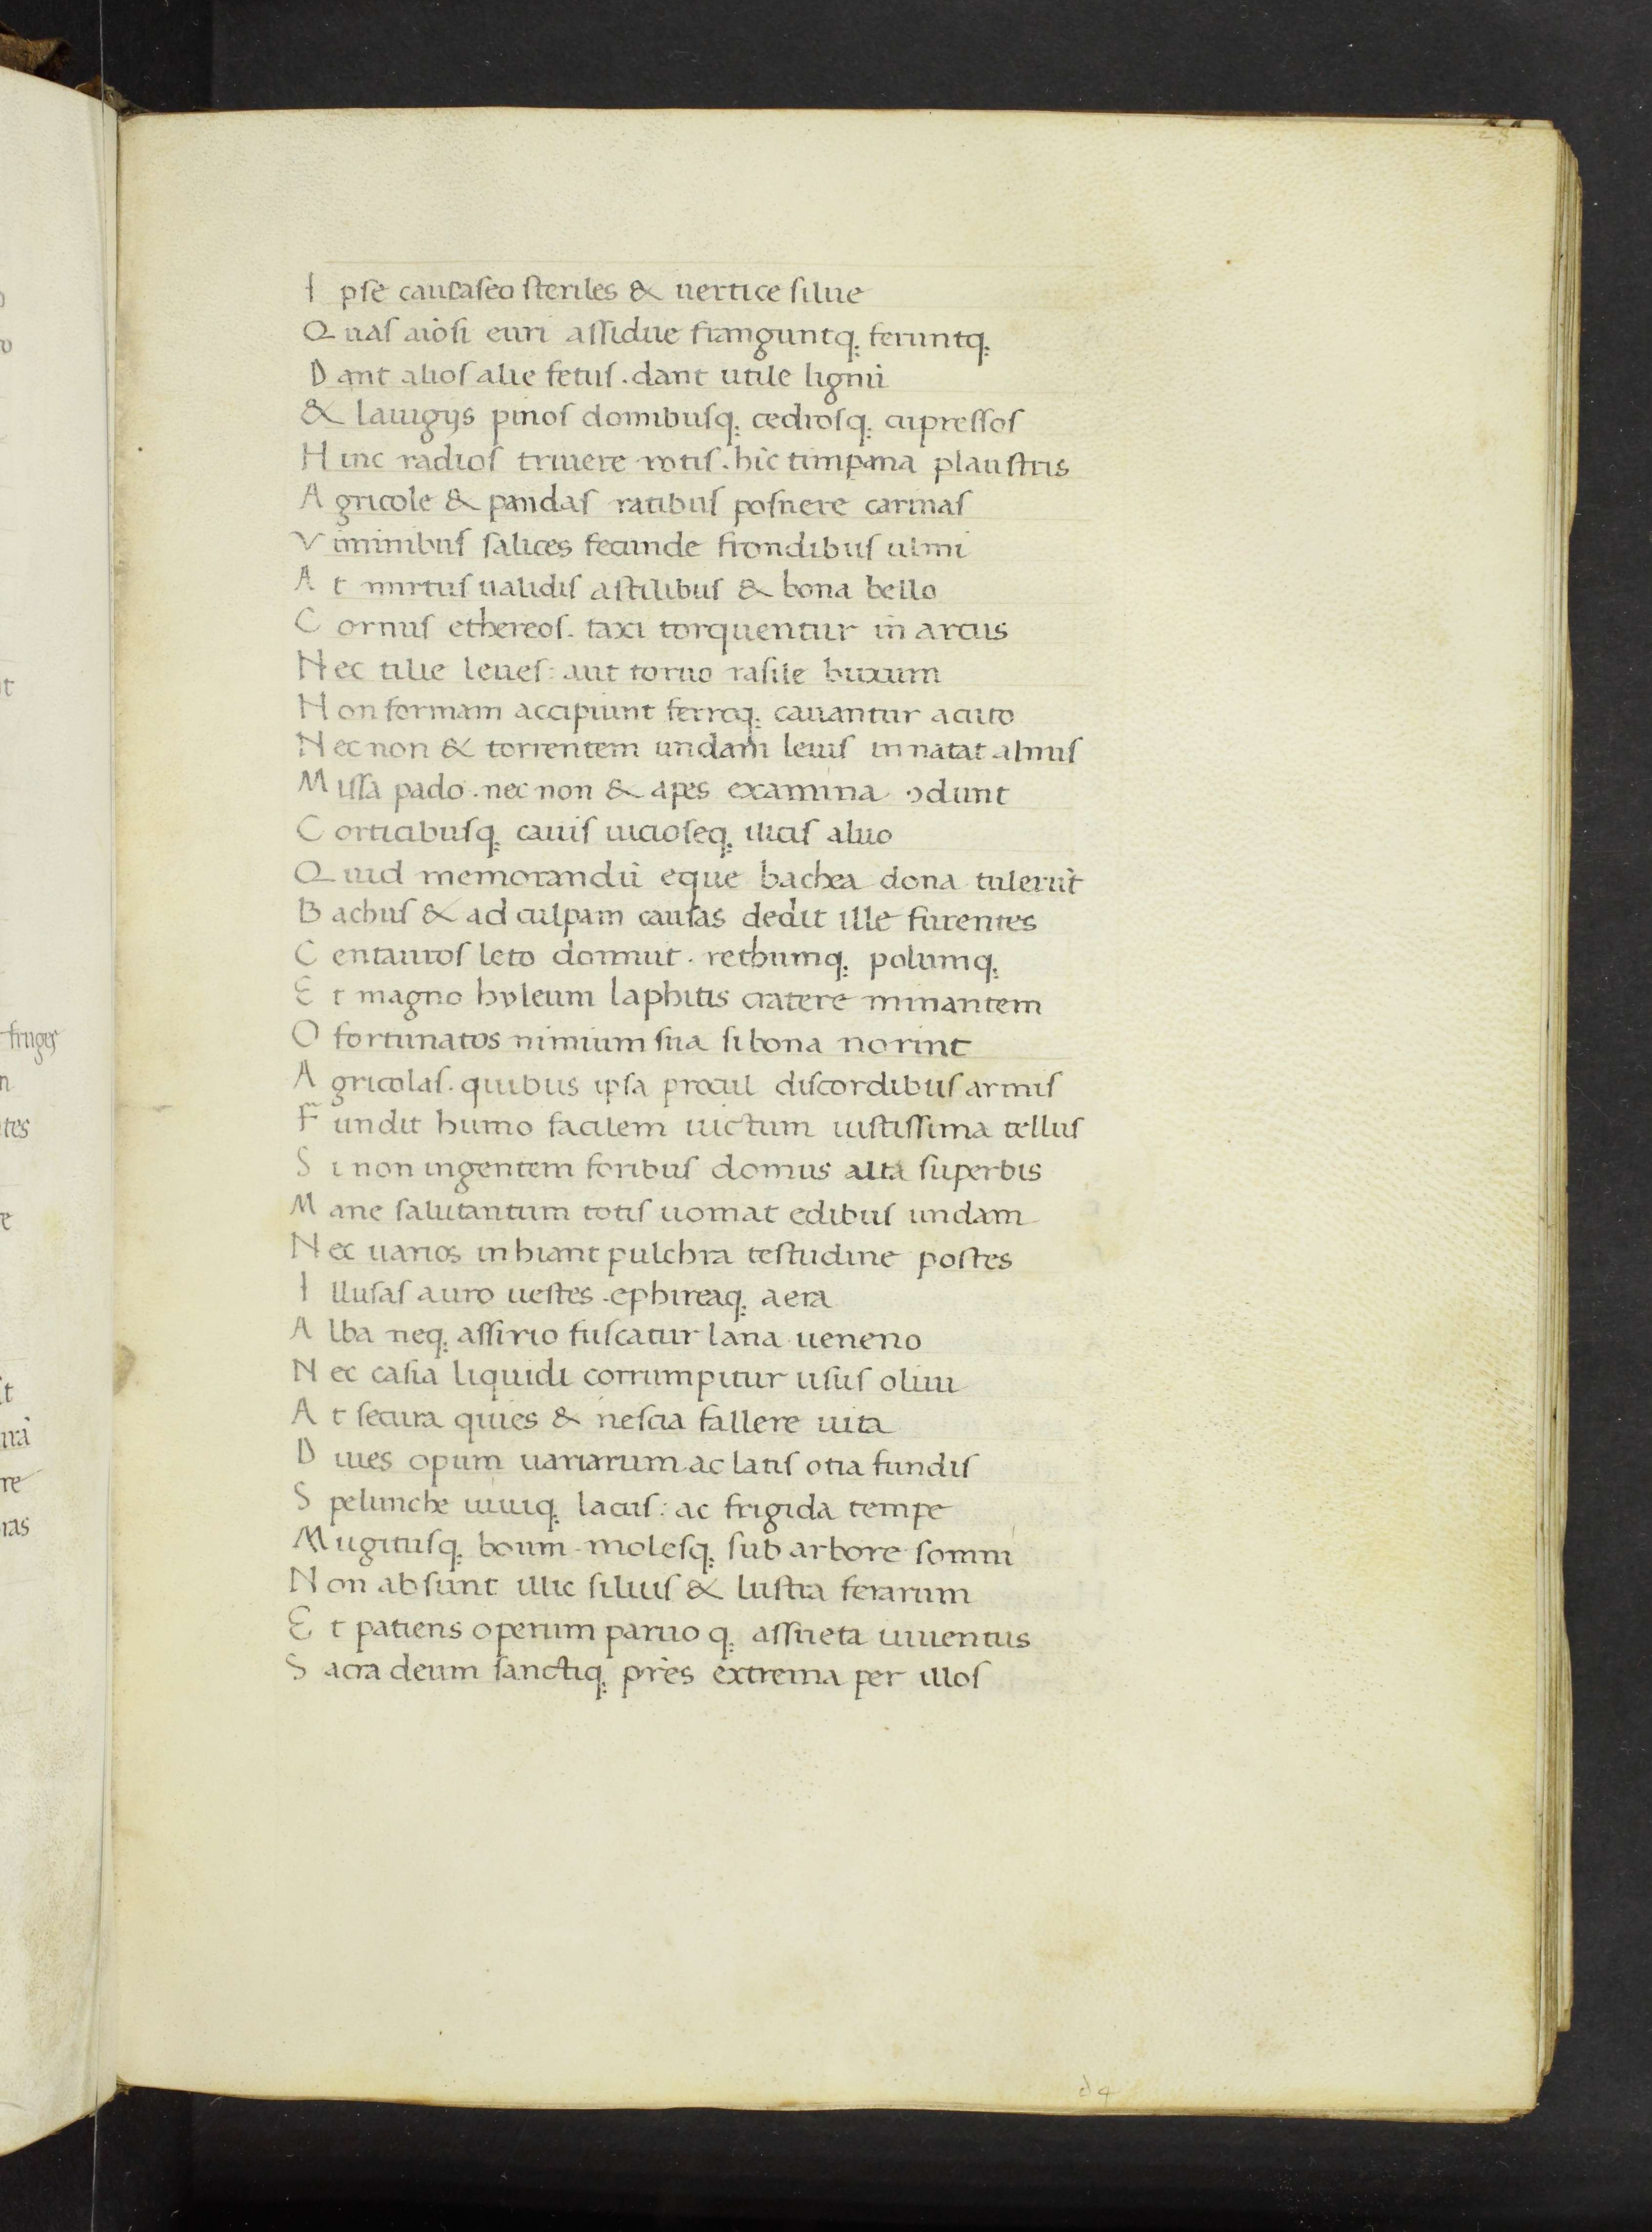 28
I pſe caucaſeo ſteriles & uertice ſilue
Q uaſ aīoſi euri aſſidue franguntq; feruntq;
D ant alioſ alie fetuſ . dant utile lignū
& lauigijs pinoſ domibuſq; cedroſq; cupreſſoſ
H inc radioſ triuere rotiſ . hīc timpana plauſtris
A gricole & pandaſ ratibuſ poſuere carinaſ
V iminibuſ ſalices fecunde frondibuſ ulmi
A t mirtuſ ualidiſ aſtilibuſ & bona bello
C ornuſ ethereoſ . taxi torquentur in arcus
N ec tilie leueſ : aut torno raſile buxum
N on formam accipiunt ferroq; cauantur acuto
N ec non & torrentem undam leuiſ in natat alnuſ
M iſſa pado . nec non & apes examina ɔdunt
C orticibuſq; cauiſ uicioſeq; iliciſ aluo
Q uid memorandū eque bachea dona tulerūt
B achuſ & ad culpam cauſas dedit ille furentes
C entauroſ leto domuit . rethumq; polumq;
E t magno hyleum laphitis cratere minantem
O fortunatos nimium ſua ſi bona norint
A gricolaſ . quibus ipſa procul diſcordibuſ armiſ
F undit humo facilem uictum iuſtiſſima telluſ
S i non ingentem foribuſ domus alta ſuperbis
M ane ſalutantum totiſ uomat edibuſ undam
N ec uarios inhiant pulchra teſtudine poſtes
I lluſaſ auro ueſtes . ephireaq; aera
A lba neq; aſſirio fuſcatur lana ueneno
N ec caſia liquidi corrumpitur uſuſ oliui
A t ſecura quies & neſcia fallere uita
D iues opum uariarum ac latiſ otia fundiſ
S pelunche uiuiq; lacuſ : ac frigida tempe
M ugituſq; boum . moleſq; ſub arbore ſomni
N on abſunt illic ſiluiſ & luſtra ferarum
E t patiens operum paruo q; aſſueta iuuentus
S acra deum ſanctiq; pr̄es extrema per illoſ
d4